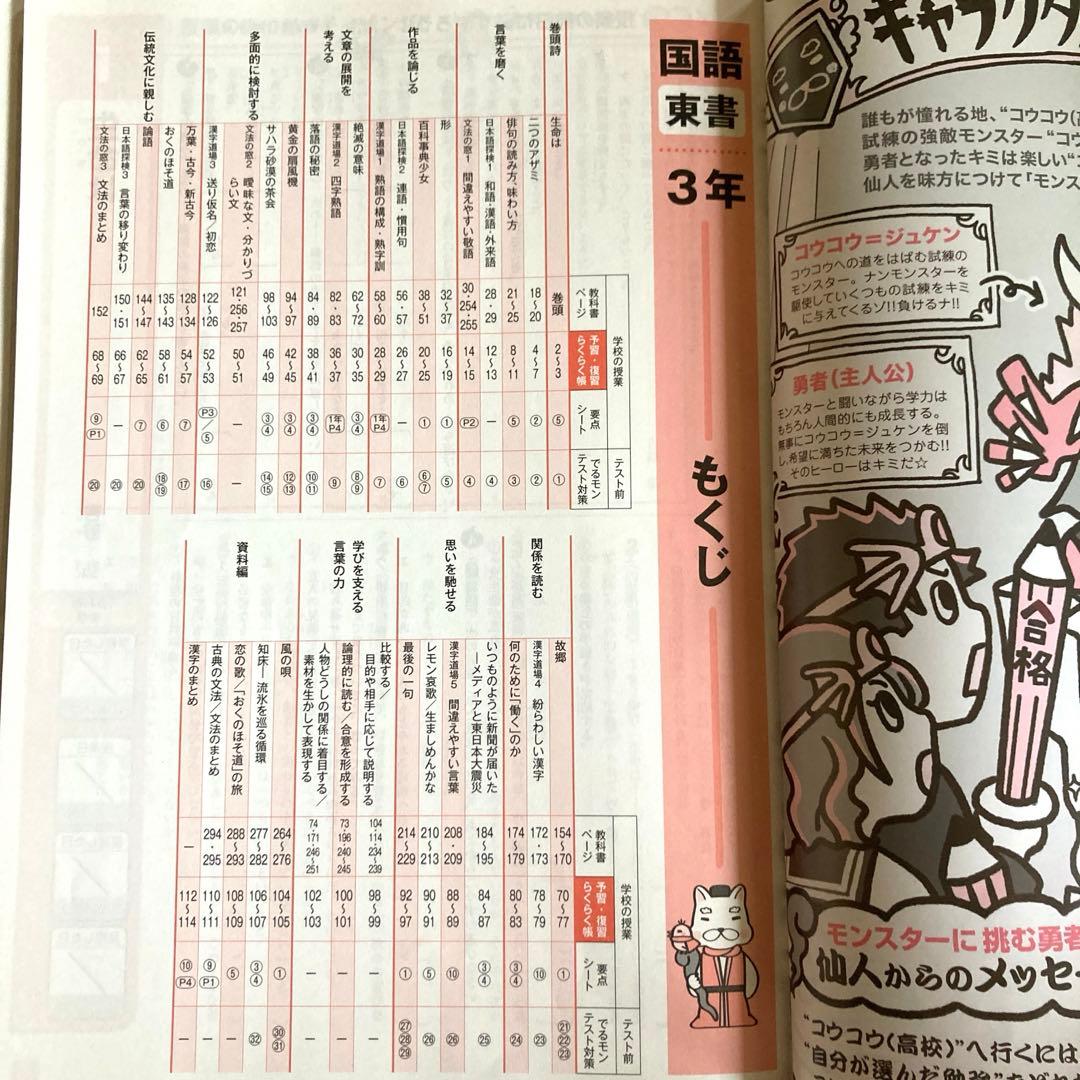 国語
東書
3年
もくじ
学校の授業
テスト前
教科書ページ
予習・復習 らくらく帳
要点シート
でるモン テスト対策
巻頭詩
生命は 巻頭 2〜3 ⑤ ①
言葉を磨く
二つのアザミ 18〜20 4〜7 ② ②
俳句の読み方、味わい方 21〜25 8〜11 ⑤ ③
日本語探検1 和語・漢語・外来語 28・29 12〜13 − ④
文法の窓1 間違えやすい敬語 30・254・255 14〜15 P2 ④
作品を論じる
形 32〜37 16〜19 ① ⑤
百科事典少女 38〜51 20〜25 ① ⑥⑦
日本語探検2 連語・慣用句 56・57 26〜27 − ⑥
漢字道場1 熟語の構成・熟字訓 58〜60 28〜29 1年P4 ⑦
文章の展開を考える
絶滅の意味 62〜72 30〜35 ③④ ⑧⑨
漢字道場2 四字熟語 82・83 36〜37 1年P4 ⑧
落語の秘密 84・89 38〜41 ③④ ⑩⑪
多面的に検討する
黄金の扇風機 94〜97 42〜45 ③④ ⑫⑬
サハラ砂漠の茶会 98〜103 46〜49 ③④ ⑭⑮
文法の窓2 曖昧な文・分かりづらい文 121・256・257 50〜51 − −
漢字道場3 送り仮名/初恋 122〜126 52〜53 P3/⑤ ⑯
伝統文化に親しむ
万葉・古今・新古今 128〜134 54〜57 ⑦ ⑰
おくのほそ道 135〜143 58〜61 ⑦ ⑱⑲
論語 144〜147 62〜65 ⑥ ⑳
日本語探検3 言葉の移り変わり 150・151 66〜67 − ⑳
文法の窓3 文法のまとめ 152 68〜69 ⑨P1 ⑳
学校の授業
テスト前
教科書ページ
予習・復習 らくらく帳
要点シート
でるモン テスト対策
関係を読む
故郷 154〜170 70〜77 ① ㉑㉒㉓
漢字道場4 紛らわしい漢字 172・173 78〜79 ⑩ ㉓
何のために「働く」のか 174〜179 80〜83 ③④ ㉔
いつものように新聞が届いた―メディアと東日本大震災 184〜195 84〜87 ③④ ㉕
思いを馳せる
漢字道場5 間違えやすい言葉 208・209 88〜89 ⑩ ㉖
レモン哀歌/生ましめんかな 210〜213 90〜91 ⑤ ㉖
最後の一句 214〜229 92〜97 ① ㉗㉘㉙
学びを支える言葉の力
比較する/目的や相手に応じて説明する 104・114・234〜239 98〜99 − −
論理的に読む/合意を形成する 73・196 240〜245 100〜101 − −
人物どうしの関係に着目する/素材を生かして表現する 74・171 246〜251 102〜103 − −
資料編
風の唄 264〜276 104〜105 ① ㉚㉛
知床―流氷を巡る循環 277〜282 106〜107 ③④ ㉜
恋の歌/「おくのほそ道」の旅 288〜293 108〜109 ⑤ −
古典の文法/文法のまとめ 294・295 110〜111 ⑨P1 −
漢字のまとめ − 112〜114 ⑩P4 −
キャラクタ
誰もが憧れる地、“コウコウ(
試練の強敵モンスター“コウ
勇者となったキミは楽しい“
仙人を味方につけて「モンス
コウコウ=ジュケン
コウコウへの道をはばむ試練の
ナンモンスターを
駆使していくつもの試練をキミ
に与えてくるゾ!!負けるナ!!
勇者(主人公)
モンスターと闘いながら学力は
もちろん人間的にも成長する。
無事にコウコウ=ジュケンを倒
し、希望に満ちた未来をつかむ!!
そのヒーローはキミだ☆
合格
モンスターに挑む勇者
仙人からのメッセー
“コウコウ(高校)”へ行くには
“自分が選んだ勉強”を